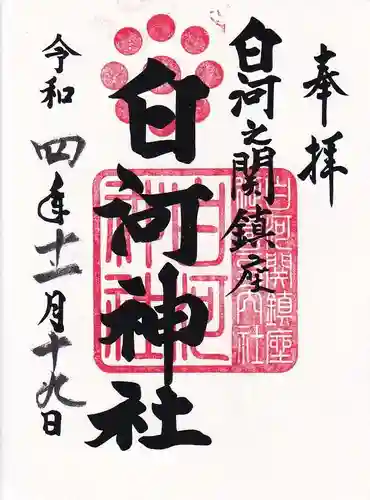 奉拝
白河之関鎮座
白河神社
令和四年十一月十九日
白河神社
白河関鎮座